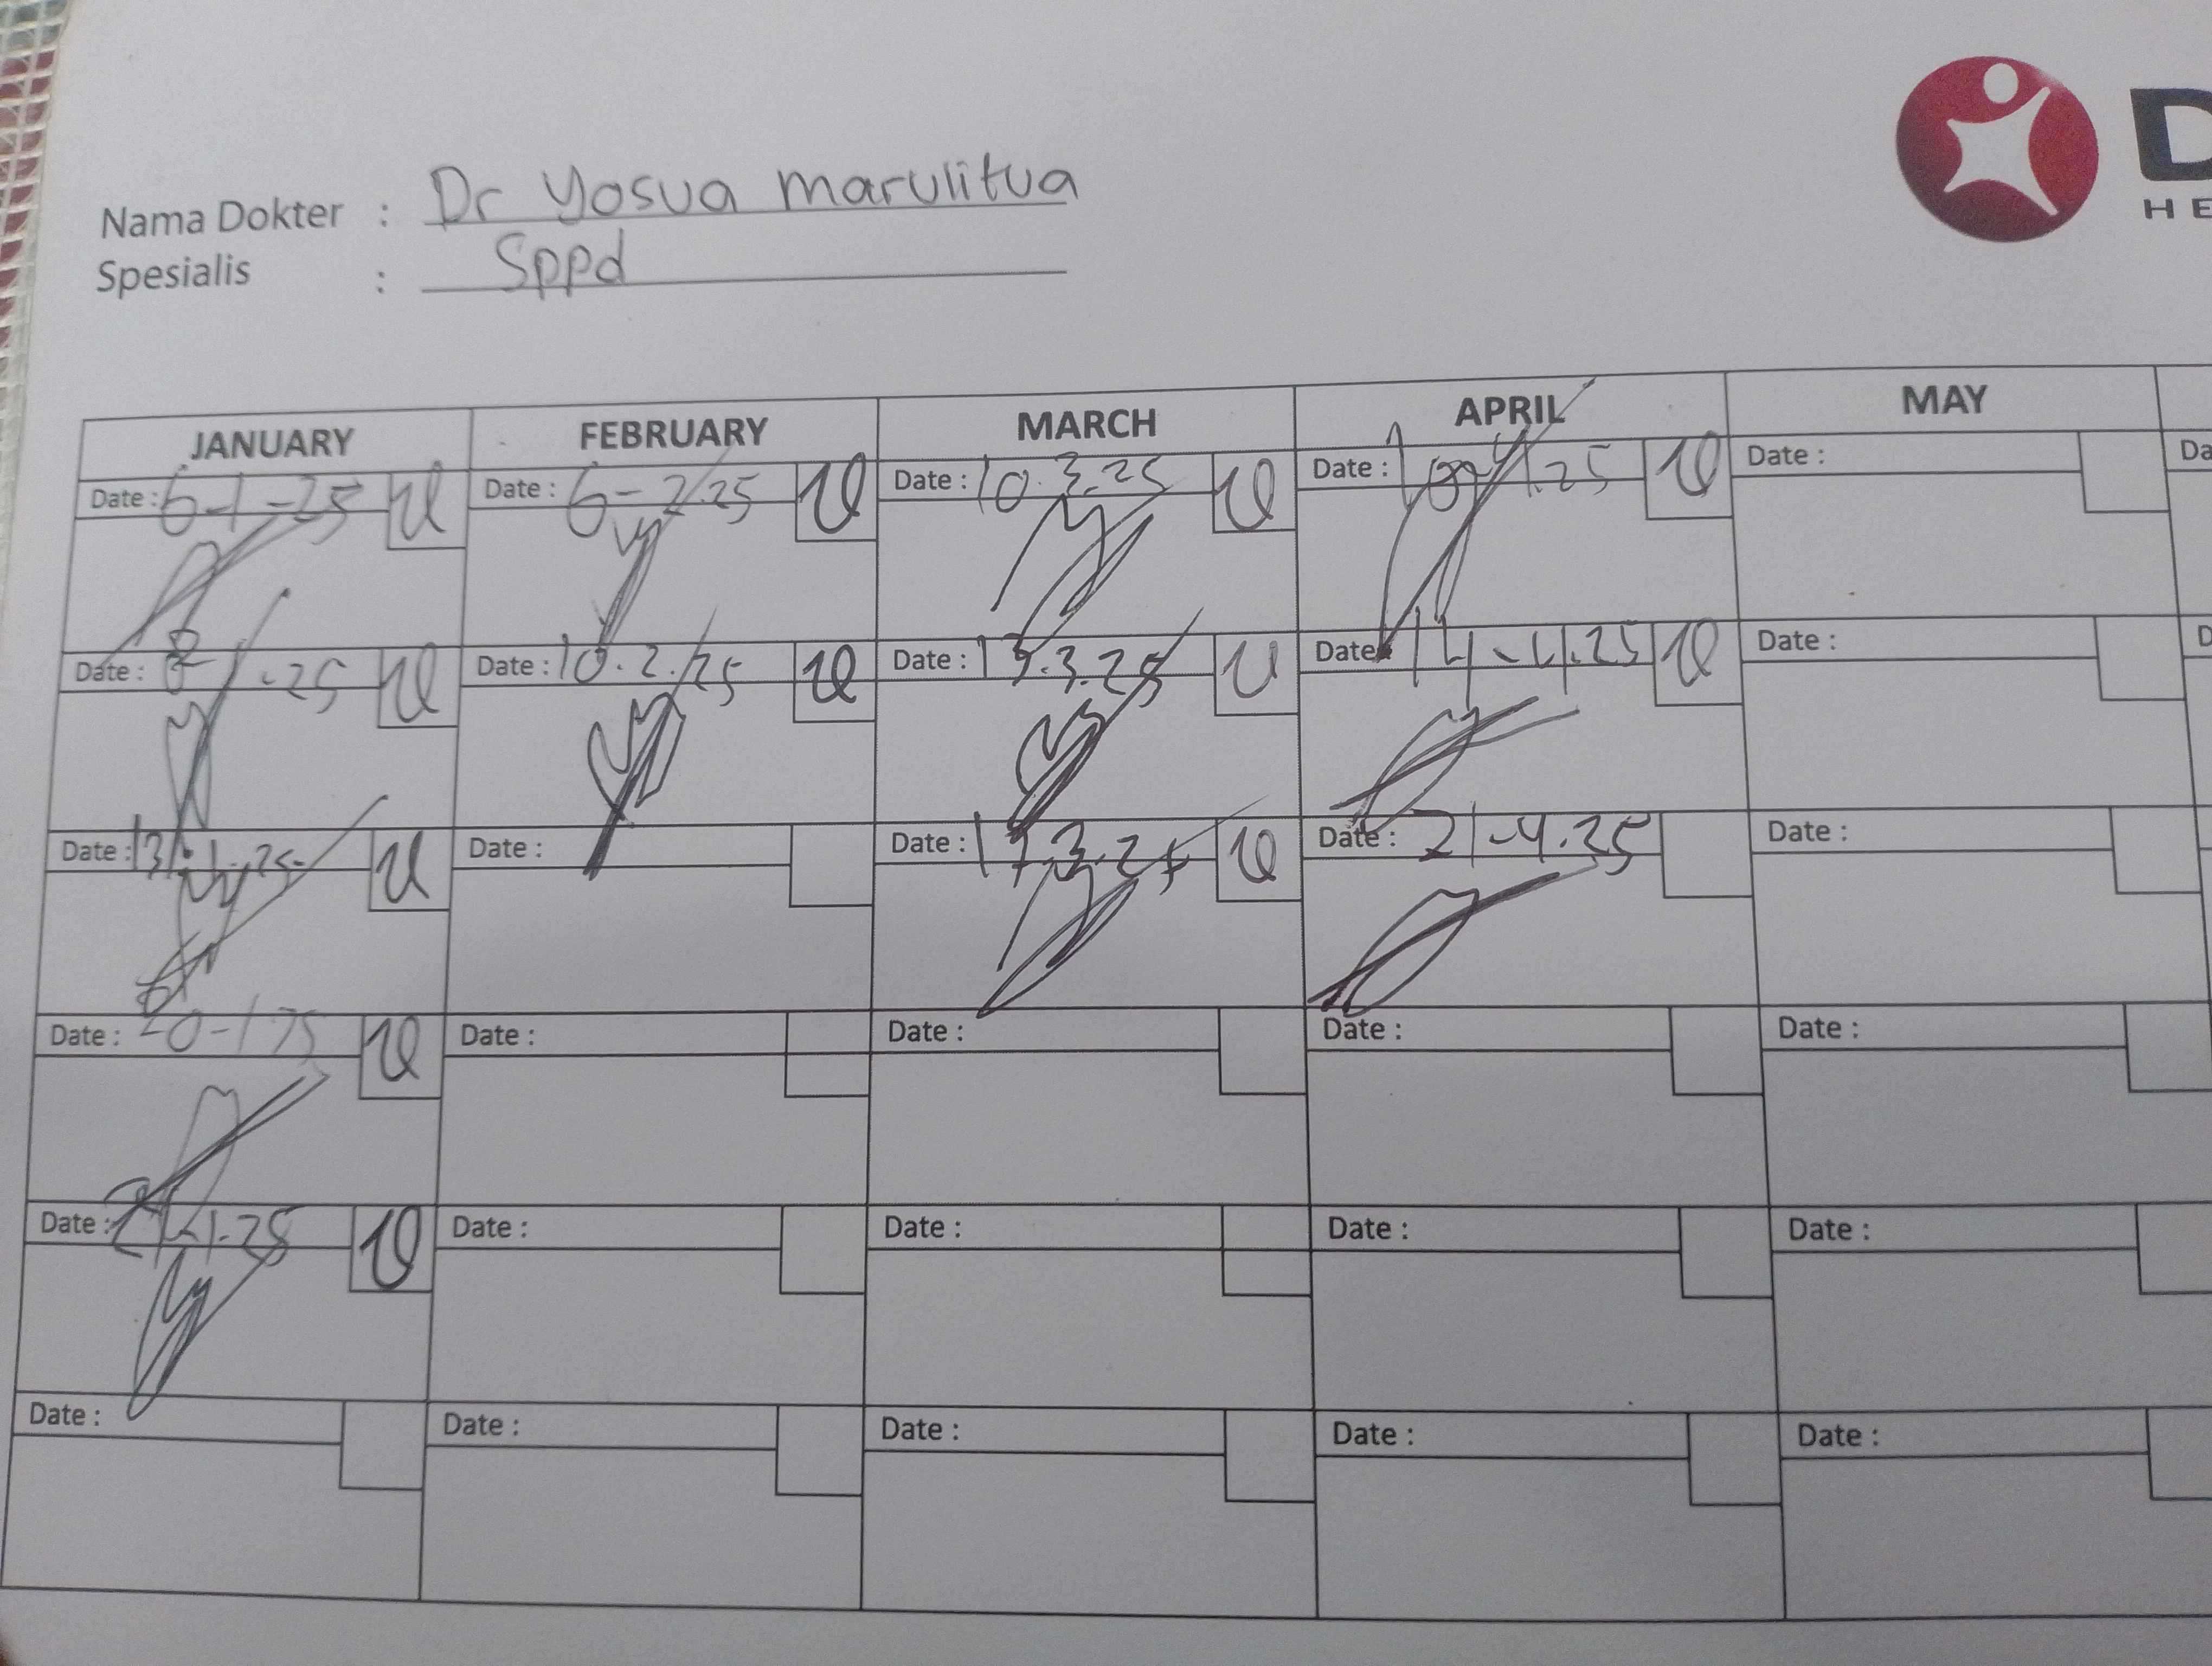 Nama Dokter : Dr Yosua Marulitua
Spesialis : Sppd
D
HE
JANUARY FEBRUARY MARCH APRIL MAY
Date : 6-1-25 Date : 6-2.25 Date : 10.3.25 Date : .25 Date : Da
Date : -25 Date : 10.2.25 Date : 13.3.25 Date : 14-4.25 Date : D
Date : 13.1.25 Date : Date : 17.3.25 Date : 21-4.25 Date :
Date : 20-1 25 Date : Date : Date : Date :
Date : Date : Date : Date : Date :
Date : Date : Date : Date : Date :